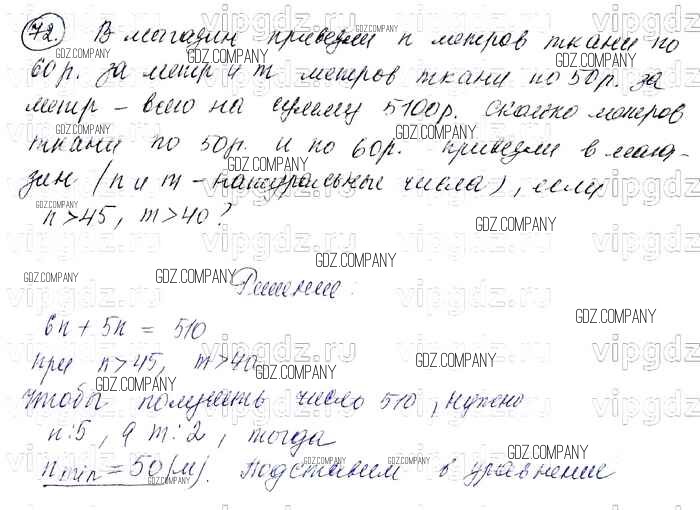 72. В магазин привезли n метров ткани по
60р. за метр и m метров ткани по 50р. за
метр – всего на сумму 5100р. Сколько метров
ткани по 50р. и по 60р. привезли в мага-
зин (n и m – натуральные числа), если
n>45, m>40?
Решение:
6n + 5n = 510
при n>45, m>40
Чтобы получить число 510, нужно
n:5, а m:2, тогда
n min = 50(м). Подставим в уравнение